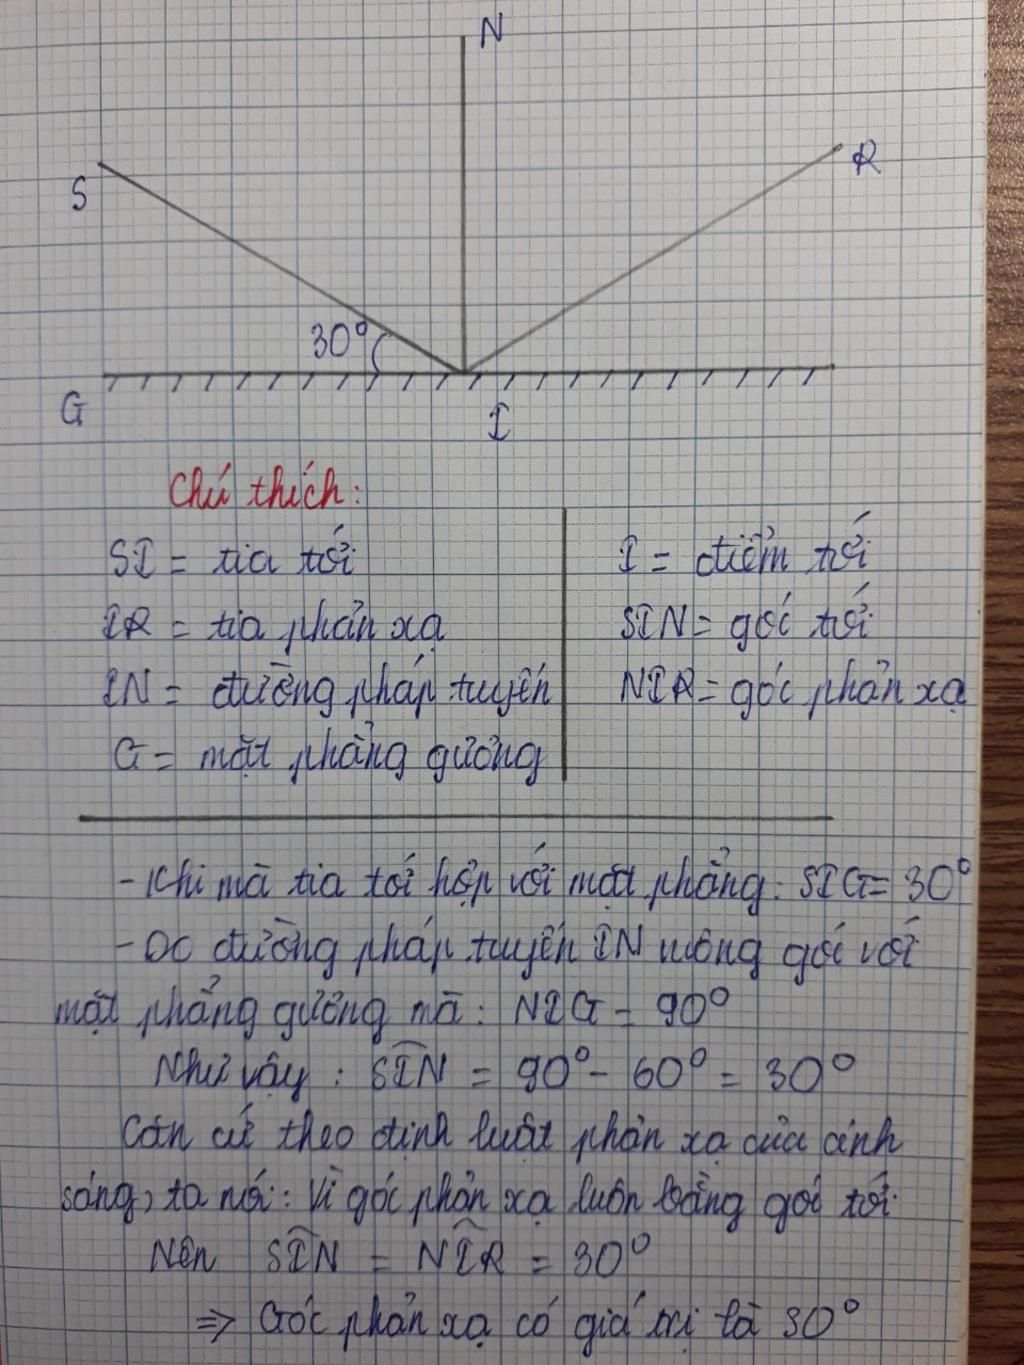 N
S
R
30°
G
I
Chú thích:
SI = tia tới
IR = tia phản xạ
IN = đường pháp tuyến
G = mặt phẳng gương
I = điểm tới
SIN = góc tới
NIR = góc phản xạ
- Khi mà tia tới hợp với mặt phẳng: SIG = 30°
- Dc đường pháp tuyến IN vuông góc với
mặt phẳng gương mà: NIG = 90°
Như vậy: SIN = 90° - 60° = 30°
Căn cứ theo định luật phản xạ của ánh
sáng, ta nói: Vì góc phản xạ luôn bằng góc tới.
Nên SIN = NIR = 30°
⇒ Góc phản xạ có giá trị là 30°